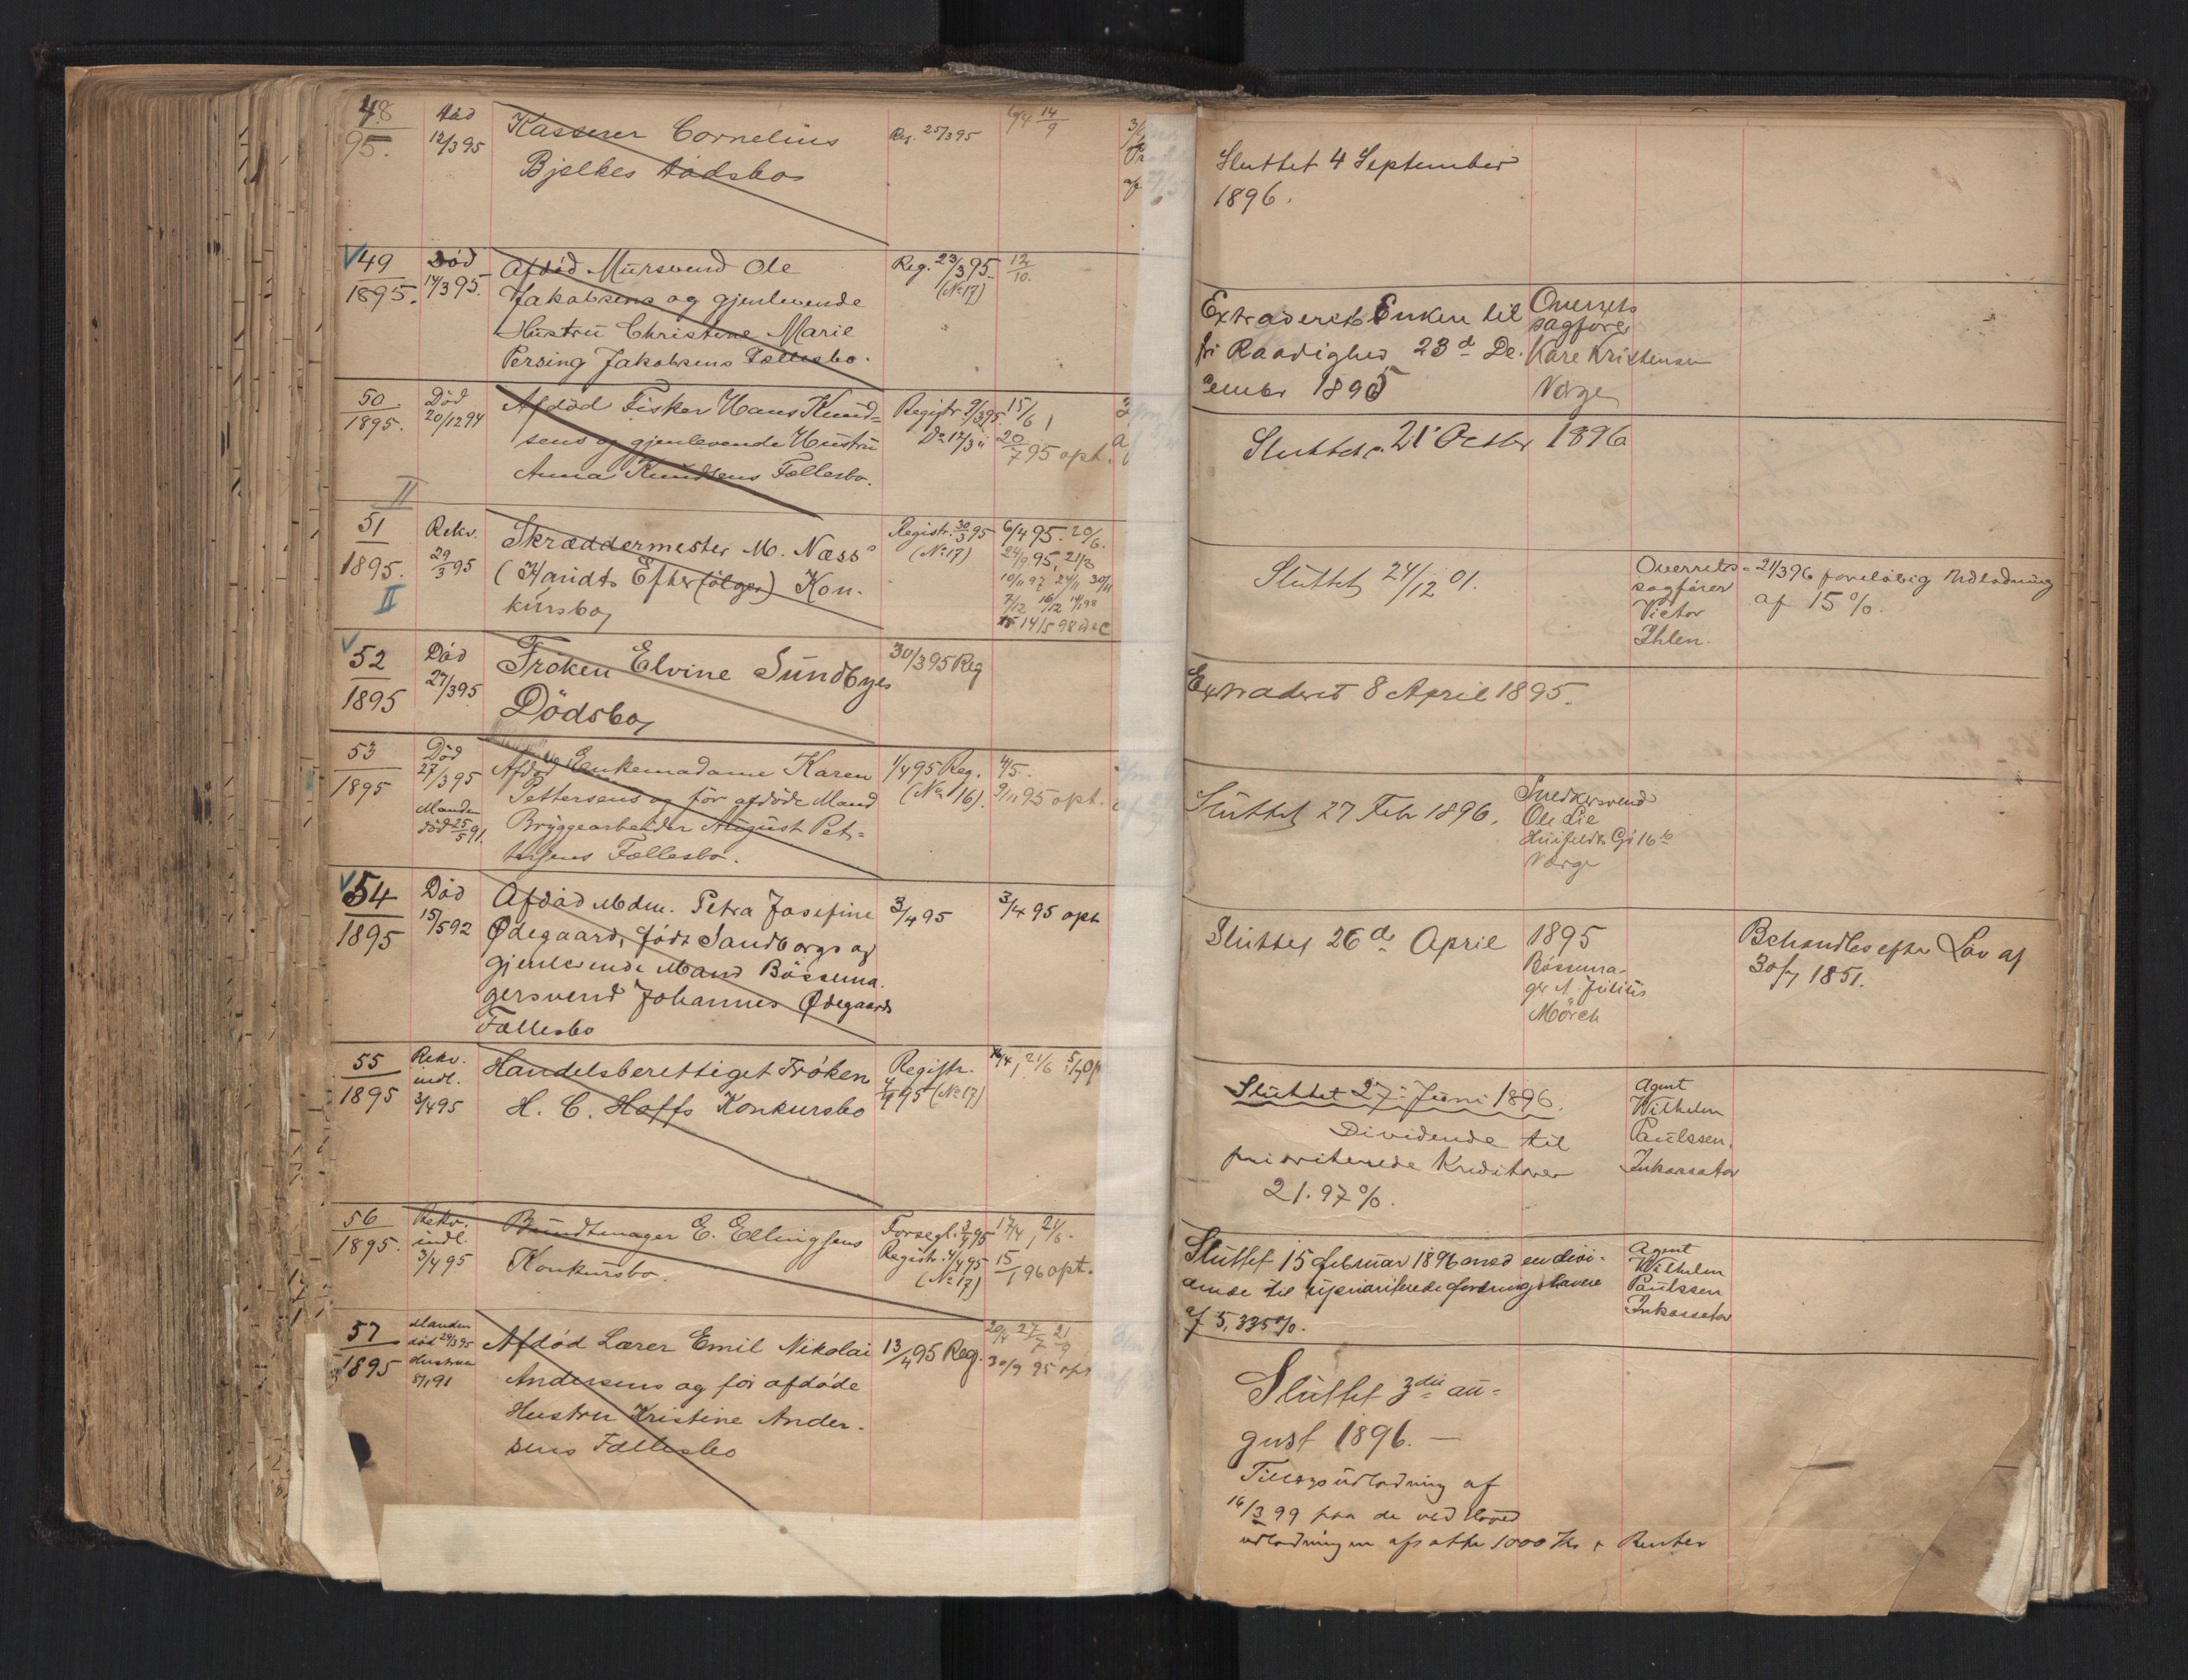 48
95.
død
12/3 95
Kasserer Cornelius
Bjelkes dødsbo
Reg. 25/3 95
14/9
Sluttet 4 September
1896.
49
1895.
Død
14/3 95.
Afdød Mursvend Ole
Jakobsens og gjenlevende
Hustru Christine Marie
Persing Jakobsens Fællesbo.
Reg. 23/3 95.
(No 17)
12/10.
Extraderet Enken til
fri Raadighed 23d De-
cember 1895
Overrets
sagfører
Kare Kristensen
Værge
50
1895.
Død
20/12 94
Afdød Fisker Hans Knud=
sens og gjenlevende Hustru
Anna Knudsens Fællesbo.
Registr. 9/3 95.
Do 12/3 "
15/6
20/7 95 opt.
Sluttet 21 Octbr 1896
II
51
1895.
II
Rekv.
29/3 95
Skræddermester M. Næss'
(Handts Efterfølger) Kon-
kursbo
Registr. 30/3 95
(No 17)
6/4 95. 20/6.
24/9 95, 21/8
10/11 97 24/11 30/11
7/12 16/12 14/1 98
14/5 98
Sluttet 24/12 01.
Overrets-
sagfører
Victor
Ihlen.
21/3 96 foreløbig Udlodning
af 15 %.
52
1895
Død
27/3 95
Frøken Elvine Sundbyes
Dødsbo
30/3 95 Reg
Extraderet 8 April 1895.
53
1895
Død
27/3 95
Manden
død 25/5 91.
Afdød Enkemadame Karen
Pettersens og før afdøde Mand
Bryggearbeider August Pet=
tersens Fællesbo.
1/4 95 Reg.
(No 16).
4/5.
9/11 95 opt.
Sluttet 27 Febr 1896.
Snedkersvend
Ole Lie
Huitfeldts Gd 16 b
Værge
54
1895
Død
15/5 92
Afdød Mdm. Petra Josefine
Ødegaard, født Sandborgs og
gjenlevende Mand Bøssema-
gersvend Johannes Ødegaards
Fællesbo
3/4 95
3/4 95 opt
Sluttet 26d April 1895
Bøssema-
ger A. Julius
Mørch
Behandles efter Lov af
30/7 1851.
55
1895
Rekv.
indl.
3/4 95
Handelsberettiget Frøken
H. C. Hoffs Konkursbo
Registr.
4/4 95 (No 17)
21/6
Sluttet 27. Juni 1896.
Dividende til
prioriterede Kreditorer
21.97 %.
Agent
Wilhelm
Paulssen.
Inkassator
56
1895.
Rekv.
indl.
3/4 95
Bundtmager E. Ellingsens
Konkursbo.
Forsegl. 3/4 95
Registr. 4/4 95
(No 17)
17/4, 21/6.
15/1 96 opt.
Sluttet 15 februar 1896 med en divi-
dende til uprioriterede fordringshavere
af 5,335 %.
Agent
Wilhelm
Paulssen
Inkassator
57
1895
Manden
død 29/3 95
Hustruen
Afdød Lærer Emil Nikolai
Andersens og før afdøde
Hustru Kristine Ander-
sens Fællesbo
13/4 95 Reg.
20/4 27/7 21/9
30/9 95 opt
Sluttet 3die au-
gust 1896. —
Tillægsudlodning af
16/3 99 paa de ved Hoved
udlodningen afsatte 1000 Kr + Renter